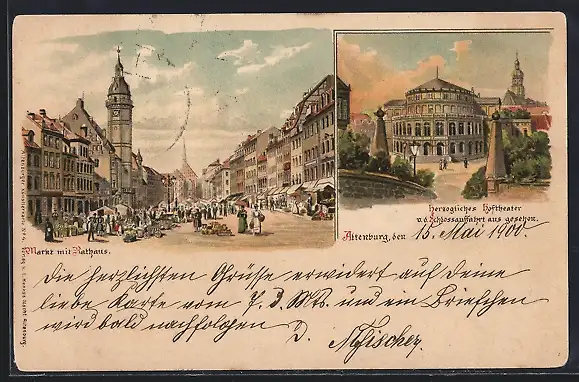 Herzogliches Hoftheater
v. d. Schlossauffahrt aus gesehen.
Markt mit Rathaus.
Altenburg, den 15. Mai 1900.
Die herzlichsten Grüsse erwidert auf deine
liebe Karte vom 7. d. Mts. und ein Briefchen
wird bald nachfolgen D. Fischer.